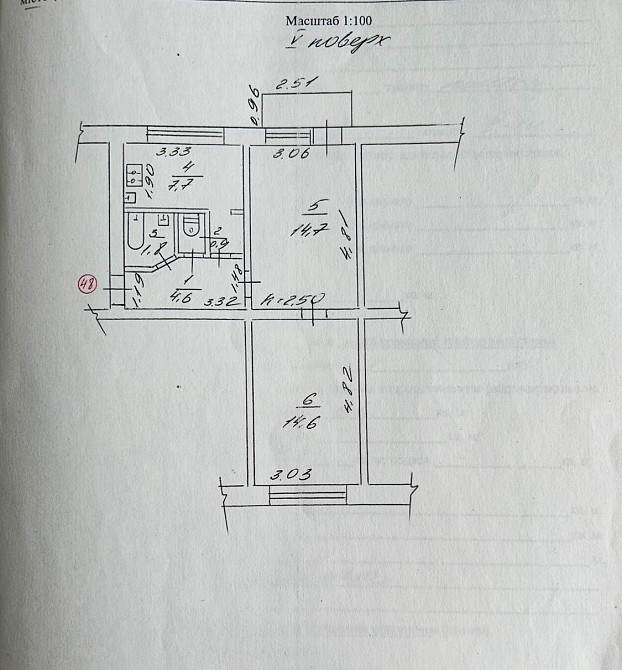 Масштаб 1:100
V поверх
2.51
0.96
3.33
3.06
4
7.7
1.90
5
14.7
4.81
3
1.8
2
0.9
48
1.19
1
4.6
3.32
1.48
h=2.50
6
14.6
4.82
3.03